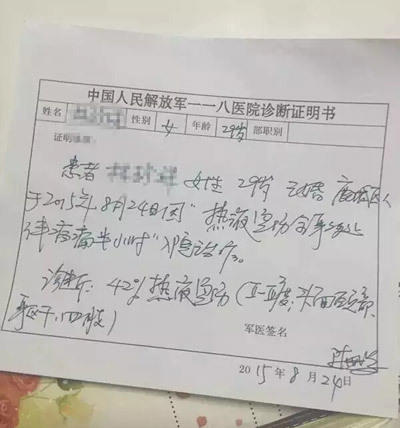 中国人民解放军一一八医院诊断证明书
姓名 性别 女 年龄 29岁 部职别
证明
患者 女性 29岁 已婚 鹿城区人
于2015年8月24日因"热液烫伤全身多处
伴疼痛半小时"入院治疗。
诊断：42%热液烫伤（II-III度，头面颈部、
躯干、四肢）
军医签名
2015年8月24日